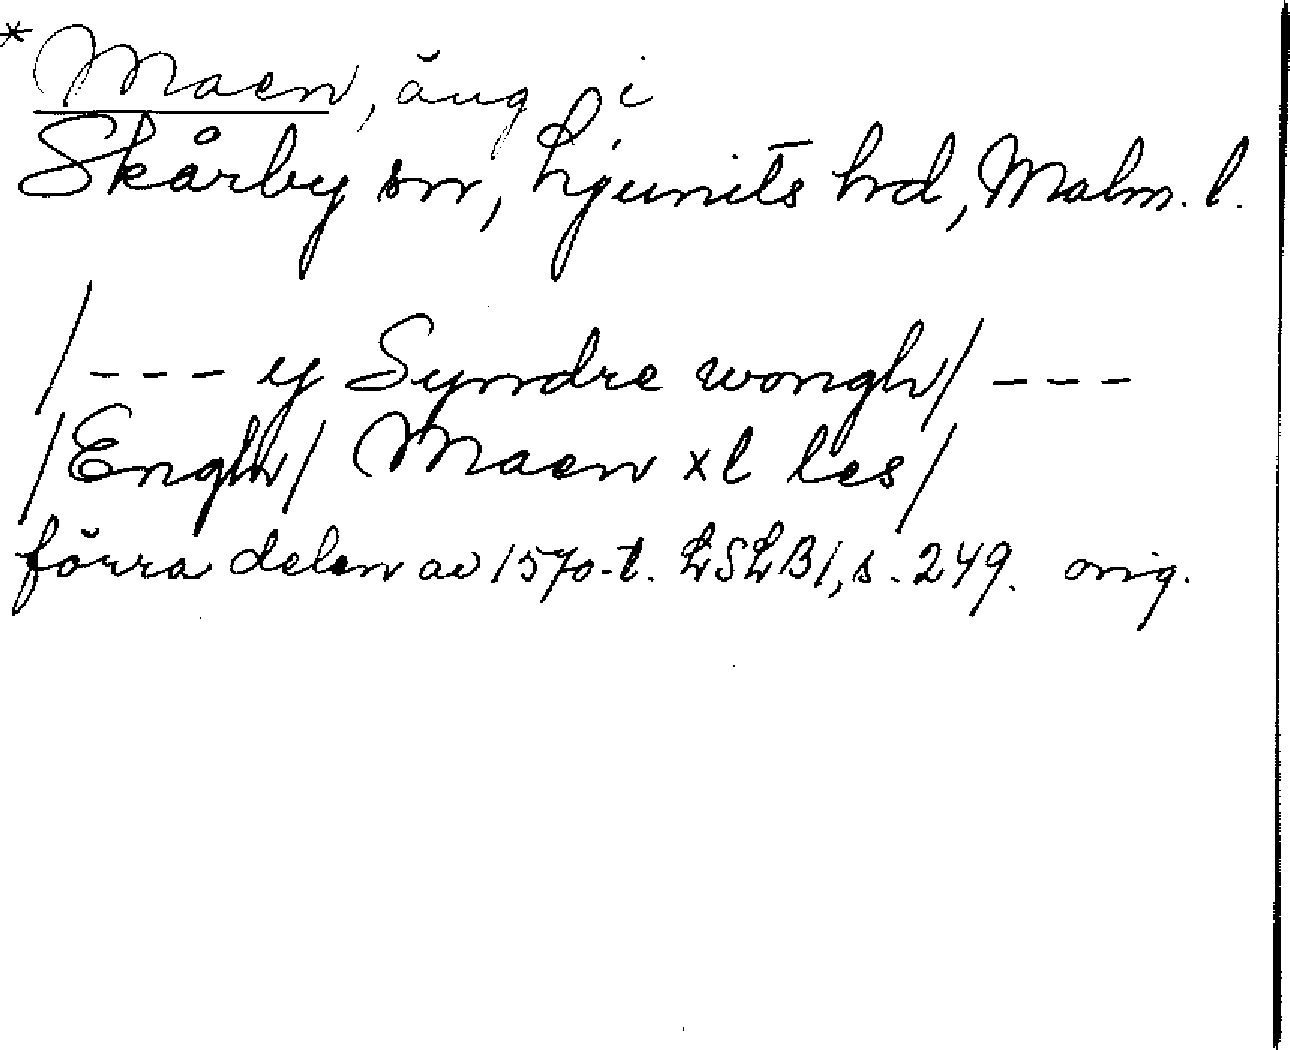 *Maen, äng i
Skårby sn, Ljunits hd, Malm. l.
/--- y Syndre wongh/ ---
/Engh/ Maen xl les/
förra delen av 1570-t. LSLB1, s. 249. orig.